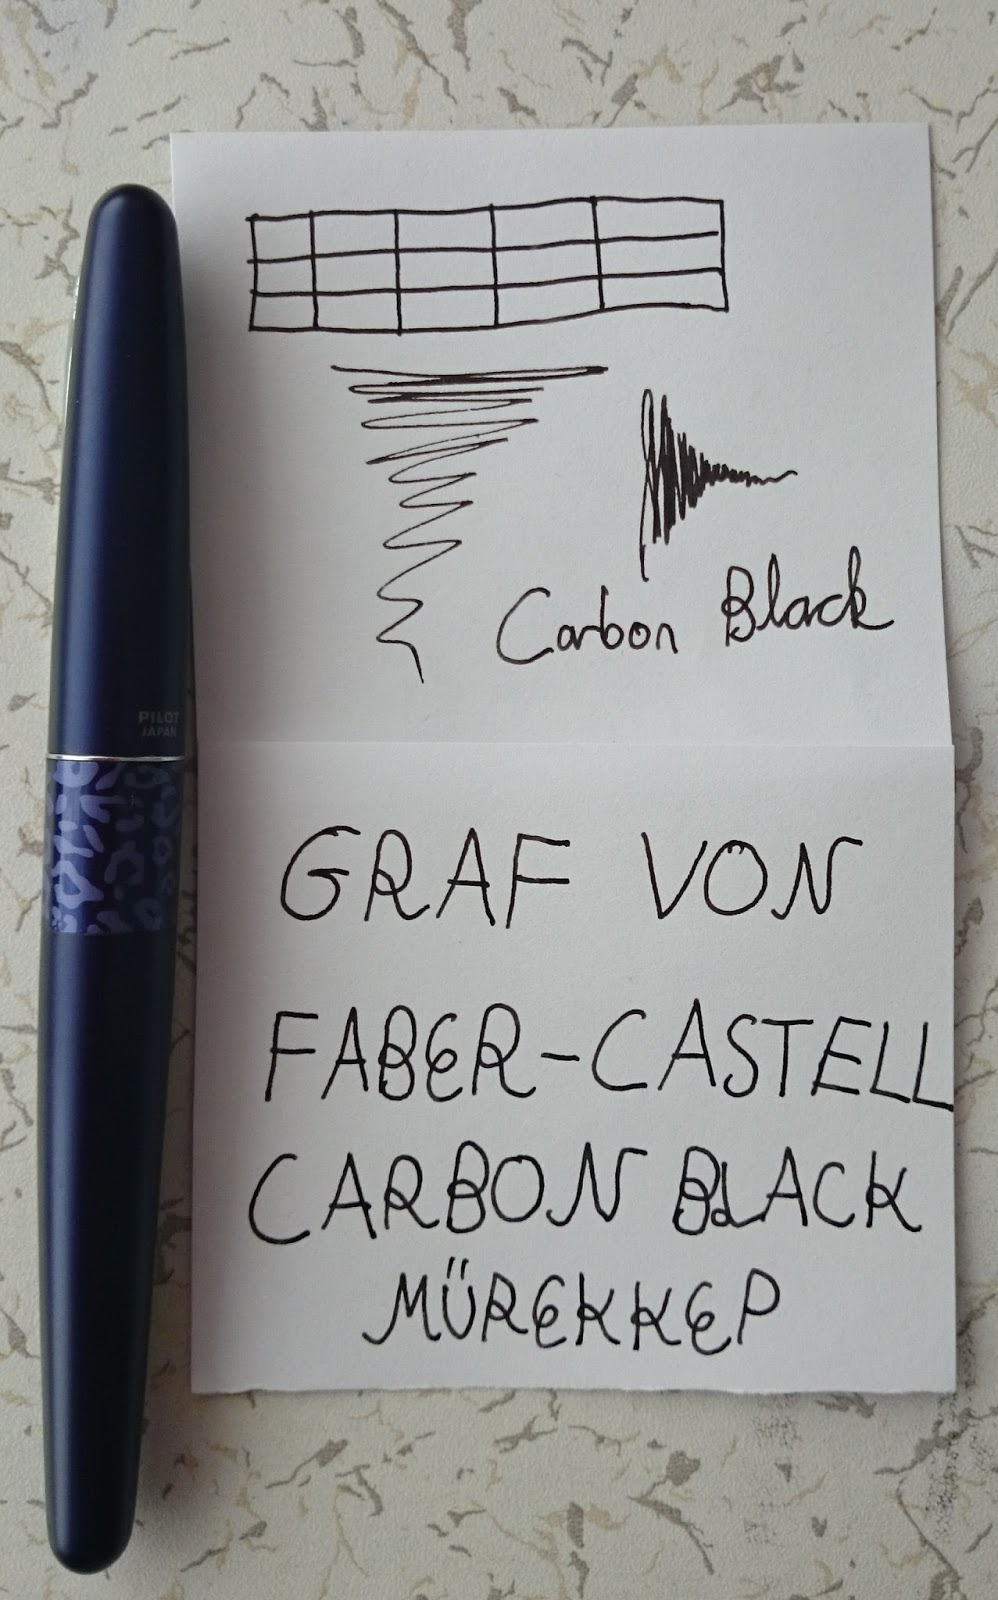 Carbon Black
PILOT
JAPAN
GRAF VON
FABER-CASTELL
CARBON BLACK
MÜREKKEP